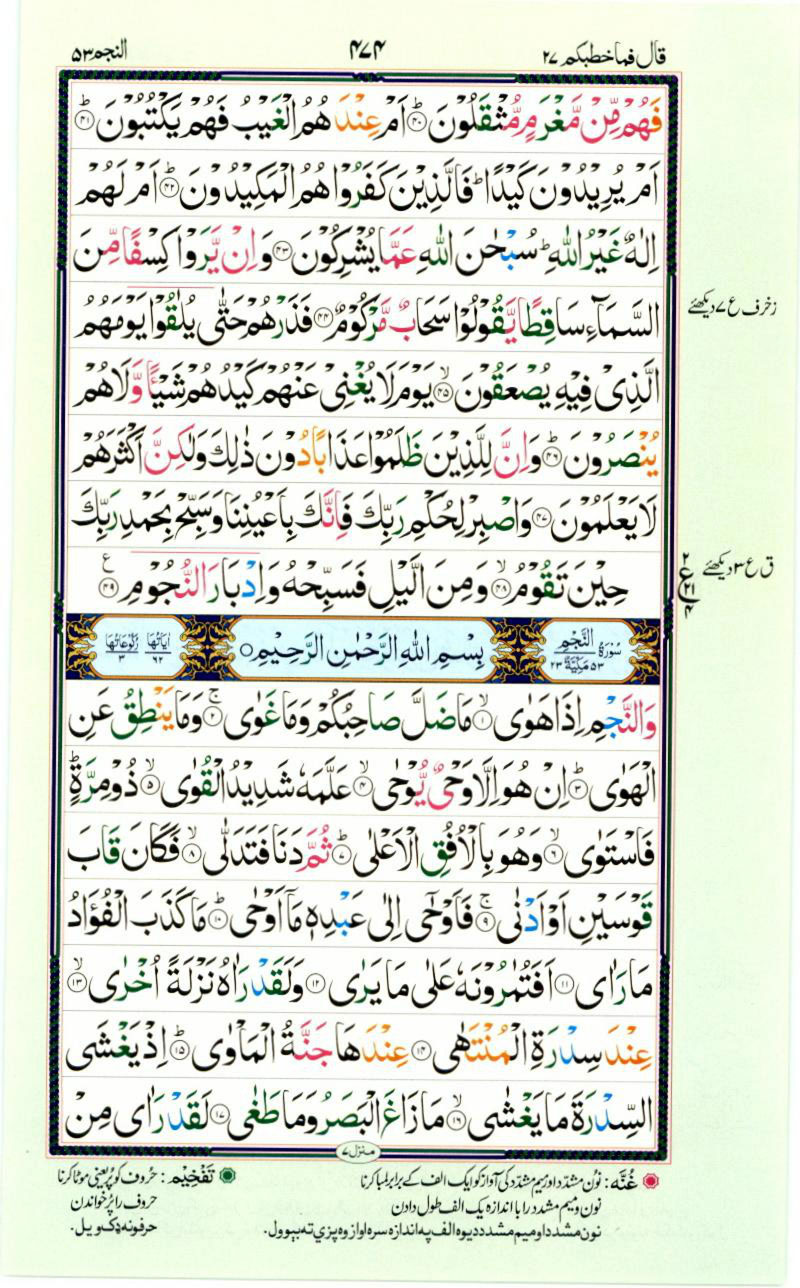 قال فما خطبکم ۲۷
۴۷۴
النجم ۵۳
فَهُمْ مِّنْ مَّغْرَمٍ مُّثْقَلُوْنَ ؕ﴿۴۰﴾ اَمْ عِنْدَهُمُ الْغَيْبُ فَهُمْ يَكْتُبُوْنَ ؕ﴿۴۱﴾
اَمْ يُرِيْدُوْنَ كَيْدًا ؕ فَالَّذِيْنَ كَفَرُوْا هُمُ الْمَكِيْدُوْنَ ؕ﴿۴۲﴾ اَمْ لَهُمْ
اِلٰهٌ غَيْرُ اللّٰهِ ؕ سُبْحٰنَ اللّٰهِ عَمَّا يُشْرِكُوْنَ ﴿۴۳﴾ وَاِنْ يَّرَوْا كِسْفًا مِّنَ
السَّمَآءِ سَاقِطًا يَّقُوْلُوْا سَحَابٌ مَّرْكُوْمٌ ﴿۴۴﴾ فَذَرْهُمْ حَتّٰى يُلٰقُوْا يَوْمَهُمُ
زخرف ع ۷ دیکھئے
الَّذِىْ فِيْهِ يُصْعَقُوْنَ ۙ﴿۴۵﴾ يَوْمَ لَا يُغْنِىْ عَنْهُمْ كَيْدُهُمْ شَيْـًٔا وَّلَا هُمْ
يُنْصَرُوْنَ ؕ﴿۴۶﴾ وَاِنَّ لِلَّذِيْنَ ظَلَمُوْا عَذَابًا دُوْنَ ذٰلِكَ وَلٰكِنَّ اَكْثَرَهُمْ
لَا يَعْلَمُوْنَ ﴿۴۷﴾ وَاصْبِرْ لِحُكْمِ رَبِّكَ فَاِنَّكَ بِاَعْيُنِنَا وَسَبِّحْ بِحَمْدِ رَبِّكَ
حِيْنَ تَقُوْمُ ۙ﴿۴۸﴾ وَمِنَ الَّيْلِ فَسَبِّحْهُ وَاِدْبَارَ النُّجُوْمِ ﴿۴۹﴾ ع
۲ ع ۲۱ ۴
ق ع ۳ دیکھئے
سُوْرَةُ النَّجْمِ ۵۳ مَكِّيَّةٌ ۲۳
بِسْمِ اللّٰهِ الرَّحْمٰنِ الرَّحِيْمِ ۝
اٰيَاتُهَا ۶۲ رُكُوْعَاتُهَا ۳
وَالنَّجْمِ اِذَا هَوٰى ۙ﴿۱﴾ مَا ضَلَّ صَاحِبُكُمْ وَمَا غَوٰى ۚ﴿۲﴾ وَمَا يَنْطِقُ عَنِ
الْهَوٰى ؕ﴿۳﴾ اِنْ هُوَ اِلَّا وَحْىٌ يُّوْحٰى ۙ﴿۴﴾ عَلَّمَهٗ شَدِيْدُ الْقُوٰى ۙ﴿۵﴾ ذُوْ مِرَّةٍ ؕ
فَاسْتَوٰى ۙ﴿۶﴾ وَهُوَ بِالْاُفُقِ الْاَعْلٰى ؕ﴿۷﴾ ثُمَّ دَنَا فَتَدَلّٰى ۙ﴿۸﴾ فَكَانَ قَابَ
قَوْسَيْنِ اَوْ اَدْنٰى ۚ﴿۹﴾ فَاَوْحٰٓى اِلٰى عَبْدِهٖ مَاۤ اَوْحٰى ؕ﴿۱۰﴾ مَا كَذَبَ الْفُؤَادُ
مَا رَاٰى ﴿۱۱﴾ اَفَتُمٰرُوْنَهٗ عَلٰى مَا يَرٰى ﴿۱۲﴾ وَلَقَدْ رَاٰهُ نَزْلَةً اُخْرٰى ۙ﴿۱۳﴾
عِنْدَ سِدْرَةِ الْمُنْتَهٰى ﴿۱۴﴾ عِنْدَهَا جَنَّةُ الْمَاْوٰى ؕ﴿۱۵﴾ اِذْ يَغْشَى
السِّدْرَةَ مَا يَغْشٰى ۙ﴿۱۶﴾ مَا زَاغَ الْبَصَرُ وَمَا طَغٰى ﴿۱۷﴾ لَقَدْ رَاٰى مِنْ
منزل ۷
غُنَّه: نون مشدّد اور میم مشدّد کی آواز کو ایک الف کے برابر لمبا کرنا
نون و میم مشدد را با اندازہ یک الف طول دادن
نون مشدد او میم مشدد دیوہ الف په اندازہ سرہ اواز وہ پزې ته بېوول.
تَفْخِيْم: حروف کو پُر یعنی موٹا کرنا
حروف را پُر خواندن
حرفونه ډک ویل.